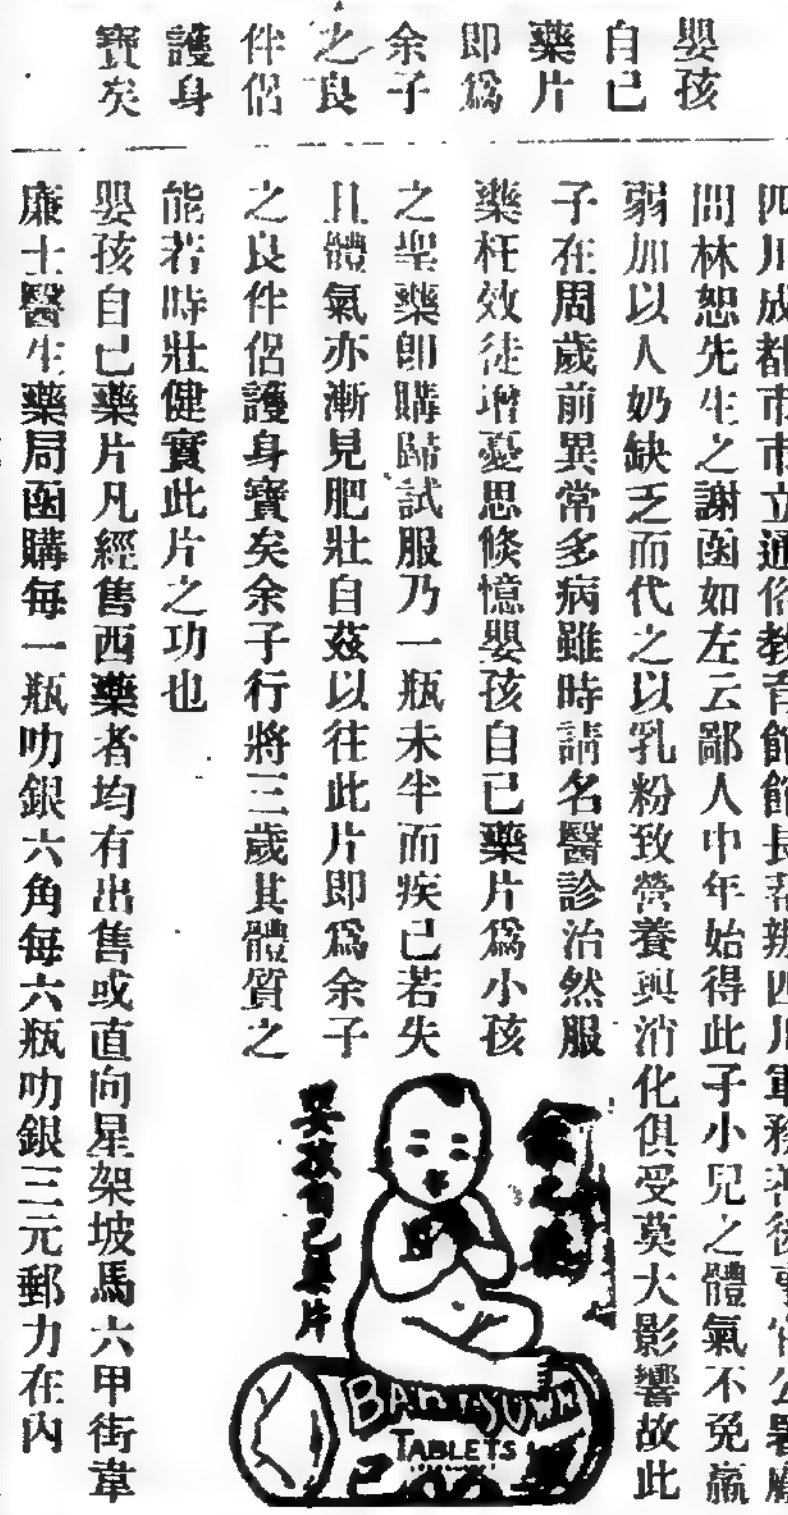 嬰孩
自己
藥片
即爲
余子
之良
伴侶
護身
寶矣
四川成都市市立通俗教育館館長
問林恕先生之謝函如左云鄙人中年始得此子小兒之體氣不免羸
弱加以人奶缺乏而代之以乳粉致營養與消化俱受莫大影響故此
子在周歲前異常多病雖時請名醫診治然服
藥枉效徒增憂思倏憶嬰孩自己藥片爲小孩
之聖藥卽購歸試服乃一瓶未半而疾已若失
且體氣亦漸見肥壯自茲以往此片即爲余子
之良伴侶護身寶矣余子行將三歲其體質之
能若時壯健實此片之功也
嬰孩自己藥片凡經售西藥者均有出售或直向星架坡馬六甲街韋
廉士醫生藥局函購每一瓶叻銀六角每六瓶叻銀三元郵力在內
嬰孩自己藥片
TABLETS